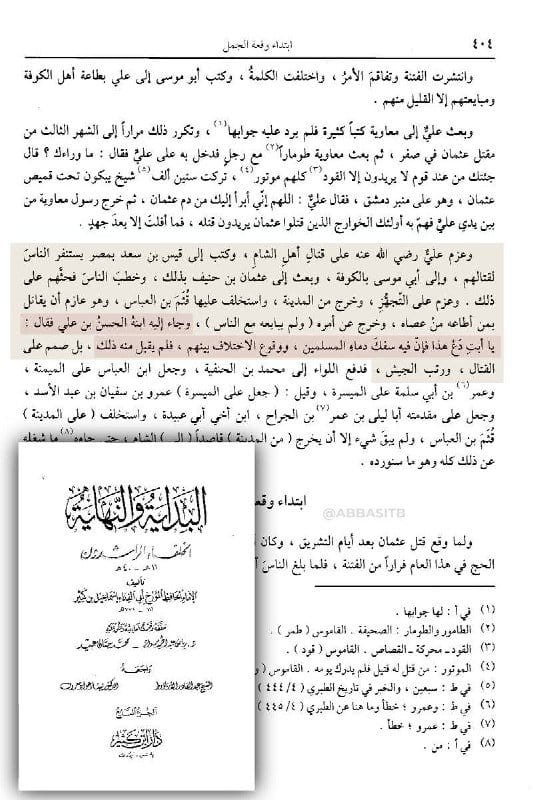 ٤٠٤
ابتداء وقعة الجمل
وانتشرت الفتنة وتفاقمَ الأمرُ ، واختلفت الكلمةُ ، وكتب أبو موسى إلى علي بطاعة أهل الكوفة
ومبايعتهم إلا القليل منهم .
وبعث عليٌّ إلى معاوية كتباً كثيرة فلم يرد عليه جوابها(١) ، وتكرر ذلك مراراً إلى الشهر الثالث من
مقتل عثمان في صفر ، ثم بعث معاوية طوماراً(٢) مع رجلٍ فدخل به على عليٍّ فقال : ما وراءك ؟ قال
جئتك من عند قوم لا يريدون إلا القود(٣) كلهم موتور(٤) ، تركت ستين ألف(٥) شيخ يبكون تحت قميص
عثمان ، وهو على منبر دمشق ، فقال عليٌّ : اللهم إني أبرأ إليك من دم عثمان ، ثم خرج رسول معاوية من
بين يدي عليٍّ فهمَّ به أولئك الخوارج الذين قتلوا عثمان يريدون قتله ، فما أفلتَ إلا بعدَ جهدٍ .
وعزم عليٌّ رضي الله عنه على قتال أهل الشامِ ، وكتب إلى قيس بن سعد بمصر يستنفر الناسَ
لقتالهم ، وإلى أبي موسى بالكوفة ، وبعث إلى عثمان بن حنيف بذلك ، وخطبَ الناسَ فحثَّهم على
ذلك . وعزم على التَّجهُّزِ ، وخرج من المدينة ، واستخلف عليها قُثَمَ بن العباس ، وهو عازم أن يقاتل
بمن أطاعه من عصاه ، وخرج عن أمره ( ولم يبايعه مع الناس ) ، وجاء إليه ابنهُ الحسنُ بن علي فقال :
يا أبتِ دَعْ هذا فإنَّ فيه سفكَ دماءِ المسلمين ، ووقوع الاختلاف بينهم ، فلم يقبل منه ذلك ، بل صمم على
القتال ، ورتب الجيش ، فدفع اللواء إلى محمد بن الحنفية ، وجعل ابن العباس على الميمنة ،
وعمر(٦) بن أبي سلمة على الميسرة ، وقيل : ( جعل على الميسرة ) عمرو بن سفيان بن عبد الأسد ،
وجعل على مقدمته أبا ليلى بن عمر(٧) بن الجراح ، ابن أخي أبي عبيدة ، واستخلف ( على المدينة )
قُثَمَ بن العباس ، ولم يبقَ شيء إلا أن يخرج ( من المدينة ) قاصداً ( إلى ) الشام ، حتى جاءه(٨) ما شغله
عن ذلك كله وهو ما سنورده .
ابتداء وقعة
@ABBASITB
ولما وقع قتل عثمان بعد أيام التشريق ، وكان
الحج في هذا العام فراراً من الفتنة ، فلما بلغ الناسَ
(١) في أ : لها جوابها .
(٢) الطامور والطومار : الصحيفة . القاموس ( طمر ) .
(٣) القود ـ محركة ـ القصاص . القاموس ( قود ) .
(٤) الموتور : من قتل له قتيل فلم يدرك يومه . القاموس
(٥) في ط : سبعين ، والخبر في تاريخ الطبري ( ٤/ ٤٤٤ )
(٦) في ط : وعمرو ؛ خطأ وما هنا عن الطبري ( ٤/ ٤٤٥ )
(٧) في ط : عمرو ؛ خطأ .
(٨) في أ : من .
البداية والنهاية
الخلفاء الراشدون
١١ هـ - ٤٠ هـ
تأليف
الإمام الحافظ المؤرخ أبي الفداء إسماعيل بن كثير
دار ابن كثير